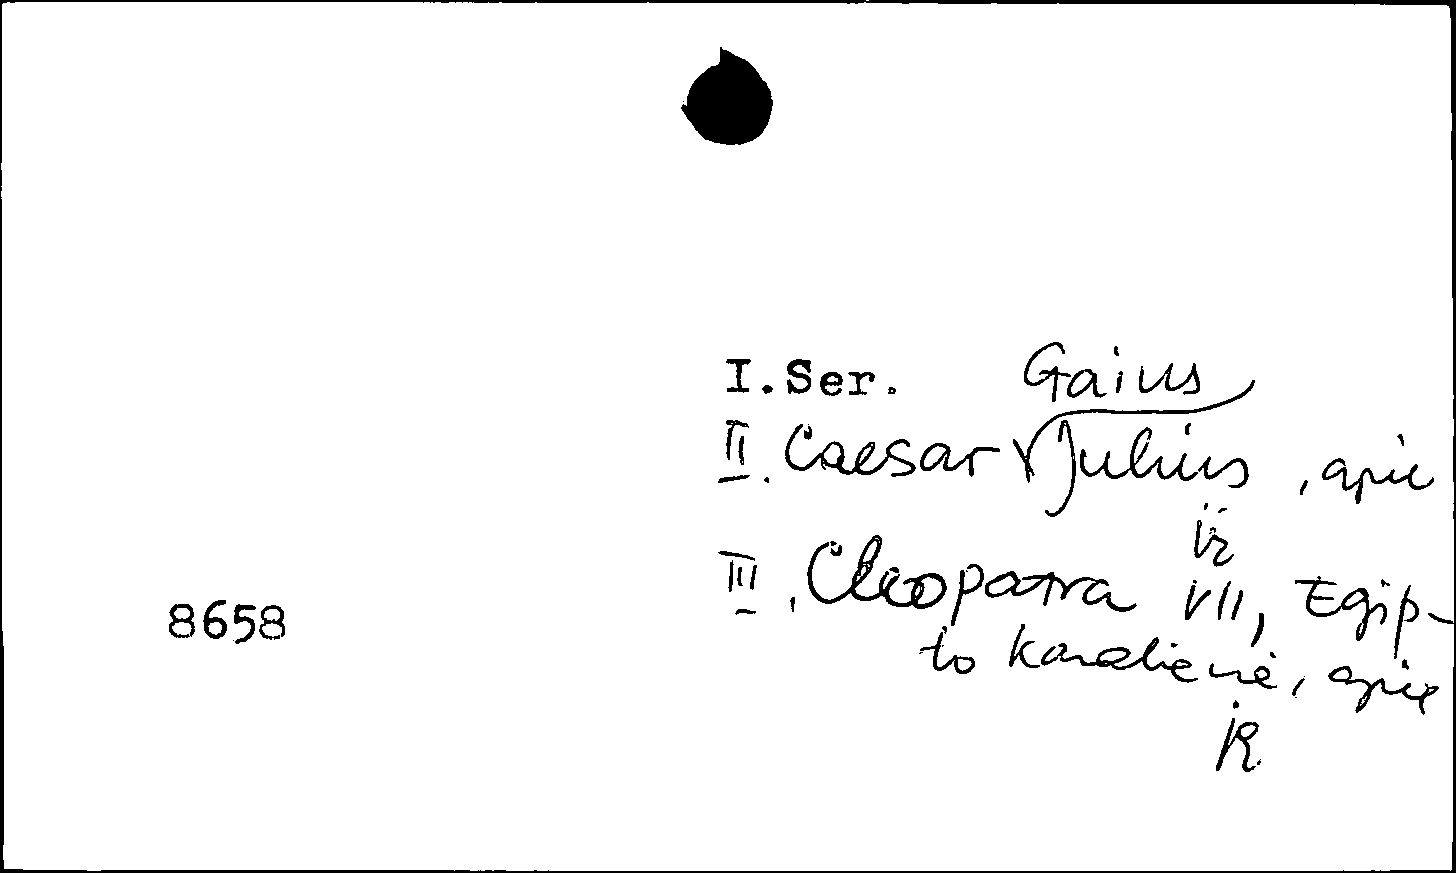 I.Ser.
Gaius
II. Caesar Julius, apie
III. Cleopatra VII, Egip-
to karalienė, apie
8658